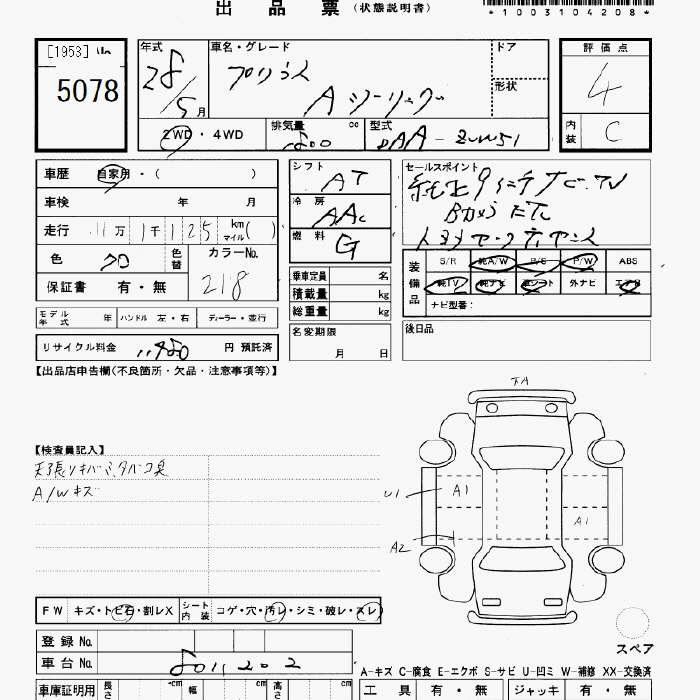 出品票（状態説明書）
*1003104208*
[1953]
5078
年式 28/5月
車名・グレード プリウス Aツーリング
ドア
形状
2WD・4WD
排気量 1800 cc
型式 DAA-ZVW51
評価点 4
内装 C
車歴 自家用・( )
車検 年 月
走行 11万1千125 km マイル( )
色 クロ 色替
カラーNo. 218
保証書 有・無
シフト AT
冷房 AAC
燃料 G
セールスポイント
純正9インチナビ.TV
Bカメラ ETC
トヨタセーフティセンス
装備品 S/R 純A/W P/S P/W ABS
純TV 純ナビ 革シート 外ナビ エアB
ナビ型番：
乗車定員 名
積載量 kg
総重量 kg
モデル年式 年 ハンドル 左・右 ディーラー・並行
名変期限 月 日
後日品
リサイクル料金 円 預託済
【出品店申告欄(不良箇所・欠品・注意事項等)】
TA
【検査員記入】
天張りキバミ,タバコ臭
A/Wキズ
U1
A1
A1
A2
FW キズ・トビ石・割レX
シート内装 コゲ・穴・汚レ・シミ・破レ・スレ
スペア
登録No.
車台No. 8011202
A-キズ C-腐食 E-エクボ S-サビ U-凹ミ W-補修 XX-交換済
車庫証明用 長さ cm 幅 cm 高さ cm
工具 有・無 ジャッキ 有・無